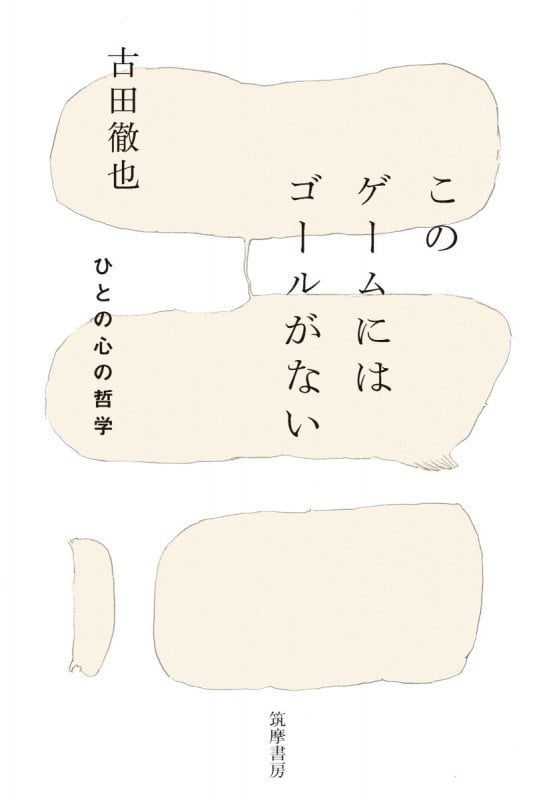 この
ゲームには
ゴールがない
ひとの心の哲学
古田徹也
筑摩書房